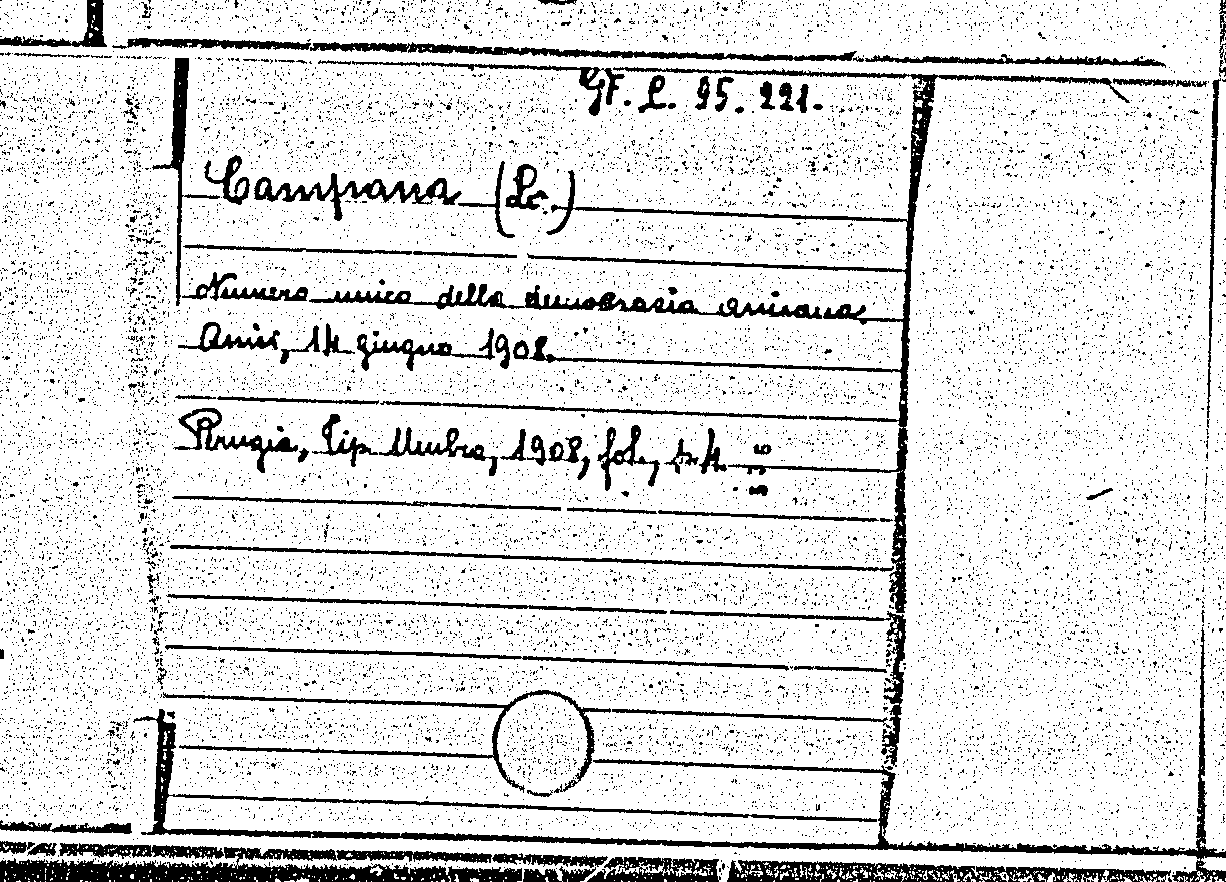 GF. L. 95. 221.
Campana (La.)
Numero unico della democrazia anisana.
Anisi, 14 giugno 1908.
Perugia, Tip. Umbra, 1908, fol., p. 4.